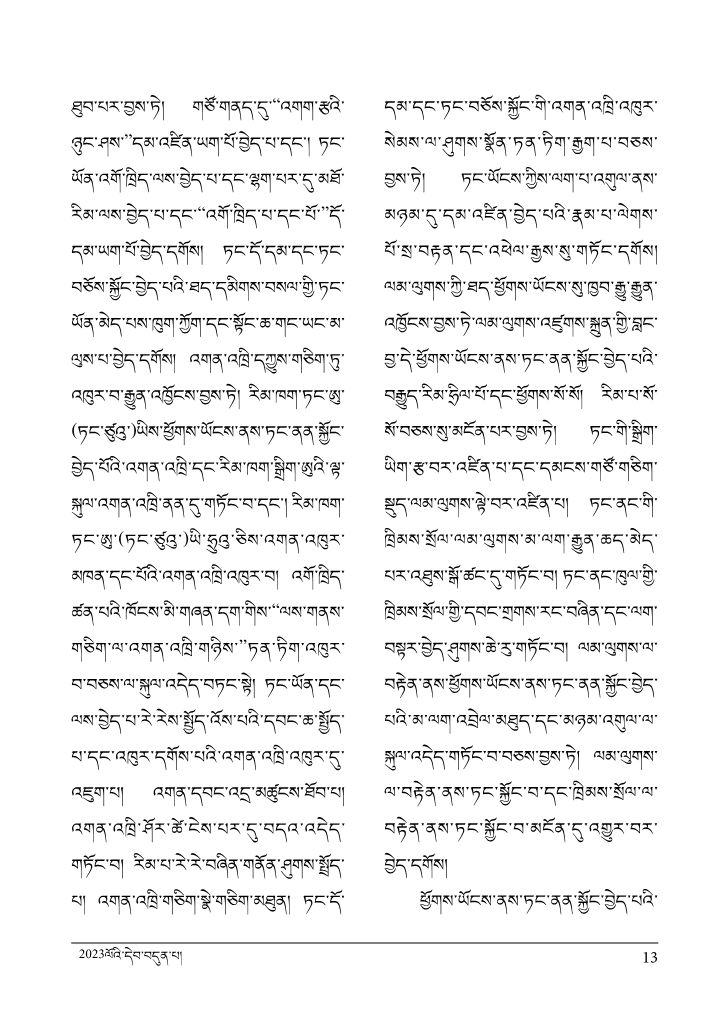 ཐུབ་པར་བྱས་ཏེ། གཙོ་གནད་དུ་“འགག་རྩའི་
ཉུང་ཤས་”དམ་འཛིན་ཡག་པོ་བྱེད་པ་དང་། ཏང་
ཡོན་འགོ་ཁྲིད་ལས་བྱེད་པ་དང་ལྷག་པར་དུ་མཐོ་
རིམ་ལས་བྱེད་པ་དང་“འགོ་ཁྲིད་པ་དང་པོ་”དོ་
དམ་ཡག་པོ་བྱེད་དགོས། ཏང་དོ་དམ་དང་ཏང་
བཅོས་སྐྱོང་བྱེད་པའི་ཐད་དམིགས་བསལ་གྱི་ཏང་
ཡོན་མེད་པས་ཁུག་ཀྱོག་དང་སྟོང་ཆ་གང་ཡང་མ་
ལུས་པ་བྱེད་དགོས། འགན་འཁྲི་དཀྱུས་གཅིག་ཏུ་
འཁུར་བ་རྒྱུན་འཁྱོངས་བྱས་ཏེ། རིམ་ཁག་ཏང་ཨུ་
(ཏང་ཙུའུ་)ཡིས་ཕྱོགས་ཡོངས་ནས་ཏང་ནན་སྐྱོང་
བྱེད་པོའི་འགན་འཁྲི་དང་རིམ་ཁག་སྒྲིག་ཨུའི་ལྟ་
སྐུལ་འགན་འཁྲི་ནན་དུ་གཏོང་བ་དང་། རིམ་ཁག་
ཏང་ཨུ་(ཏང་ཙུའུ་)ཡི་ཧྲུའུ་ཅིས་འགན་འཁུར་
མཁན་དང་པོའི་འགན་འཁྲི་འཁུར་བ། འགོ་ཁྲིད་
ཚན་པའི་ཁོངས་མི་གཞན་དག་གིས་“ལས་གནས་
གཅིག་ལ་འགན་འཁྲི་གཉིས་”ཏན་ཏིག་འཁུར་
བ་བཅས་ལ་སྐུལ་འདེད་བཏང་སྟེ། ཏང་ཡོན་དང་
ལས་བྱེད་པ་རེ་རེས་སྤྱོད་འོས་པའི་དབང་ཆ་སྤྱོད་
པ་དང་འཁུར་དགོས་པའི་འགན་འཁྲི་འཁུར་དུ་
འཇུག་པ། འགན་དབང་འདྲ་མཚུངས་ཐོབ་པ།
འགན་འཁྲི་ཤོར་ཚེ་ངེས་པར་དུ་བདའ་འདེད་
གཏོང་བ། རིམ་པ་རེ་རེ་བཞིན་གནོན་ཤུགས་སྤྲོད་
པ། འགན་འཁྲི་གཅིག་སྣེ་གཅིག་མཐུན། ཏང་དོ་
དམ་དང་ཏང་བཅོས་སྐྱོང་གི་འགན་འཁྲི་འཁུར་
སེམས་ལ་ཤུགས་སྣོན་ཏན་ཏིག་རྒྱག་པ་བཅས་
བྱས་ཏེ། ཏང་ཡོངས་ཀྱིས་ལག་པ་འགུལ་ནས་
མཉམ་དུ་དམ་འཛིན་བྱེད་པའི་རྣམ་པ་ལེགས་
པོ་སྲ་བརྟན་དང་འཕེལ་རྒྱས་སུ་གཏོང་དགོས།
ལམ་ལུགས་ཀྱི་ཐད་ཕྱོགས་ཡོངས་སུ་ཁྱབ་རྒྱུ་རྒྱུན་
འཁྱོངས་བྱས་ཏེ་ལམ་ལུགས་འཛུགས་སྐྲུན་གྱི་བླང་
བྱ་དེ་ཕྱོགས་ཡོངས་ནས་ཏང་ནན་སྐྱོང་བྱེད་པའི་
བརྒྱུད་རིམ་ཧྲིལ་པོ་དང་ཕྱོགས་སོ་སོ། རིམ་པ་སོ་
སོ་བཅས་སུ་མངོན་པར་བྱས་ཏེ། ཏང་གི་སྒྲིག་
ཡིག་རྩ་བར་འཛིན་པ་དང་དམངས་གཙོ་གཅིག་
སྡུད་ལམ་ལུགས་ལྟེ་བར་འཛིན་པ། ཏང་ནང་གི་
ཁྲིམས་སྲོལ་ལམ་ལུགས་མ་ལག་རྒྱུན་ཆད་མེད་
པར་འཐུས་སྒོ་ཚང་དུ་གཏོང་བ། ཏང་ནང་ཁུལ་གྱི་
ཁྲིམས་སྲོལ་གྱི་དབང་གྲགས་རང་བཞིན་དང་ལག་
བསྟར་བྱེད་ཤུགས་ཆེ་རུ་གཏོང་བ། ལམ་ལུགས་ལ་
བརྟེན་ནས་ཕྱོགས་ཡོངས་ནས་ཏང་ནན་སྐྱོང་བྱེད་
པའི་མ་ལག་འབྲེལ་མཐུད་དང་མཉམ་འགུལ་ལ་
སྐུལ་འདེད་གཏོང་བ་བཅས་བྱས་ཏེ། ལམ་ལུགས་
ལ་བརྟེན་ནས་ཏང་སྐྱོང་བ་དང་ཁྲིམས་སྲོལ་ལ་
བརྟེན་ནས་ཏང་སྐྱོང་བ་མངོན་དུ་འགྱུར་བར་
བྱེད་དགོས།
ཕྱོགས་ཡོངས་ནས་ཏང་ནན་སྐྱོང་བྱེད་པའི་
2023ལོའི་དེབ་བདུན་པ།
13